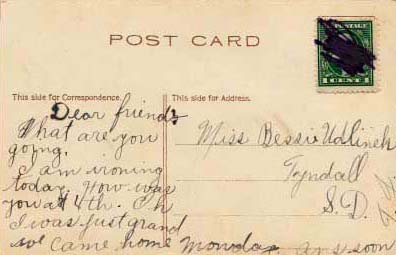 POST CARD
POSTAGE
1 CENT
This side for Correspondence.
This side for Address.
Dear friend;
What are you
going.
I am ironing
today. How was
you at 4th. Oh
I was just grand
we came home Monday. ans soon
Miss Bessie Udlinek
Tyndall
S. D.